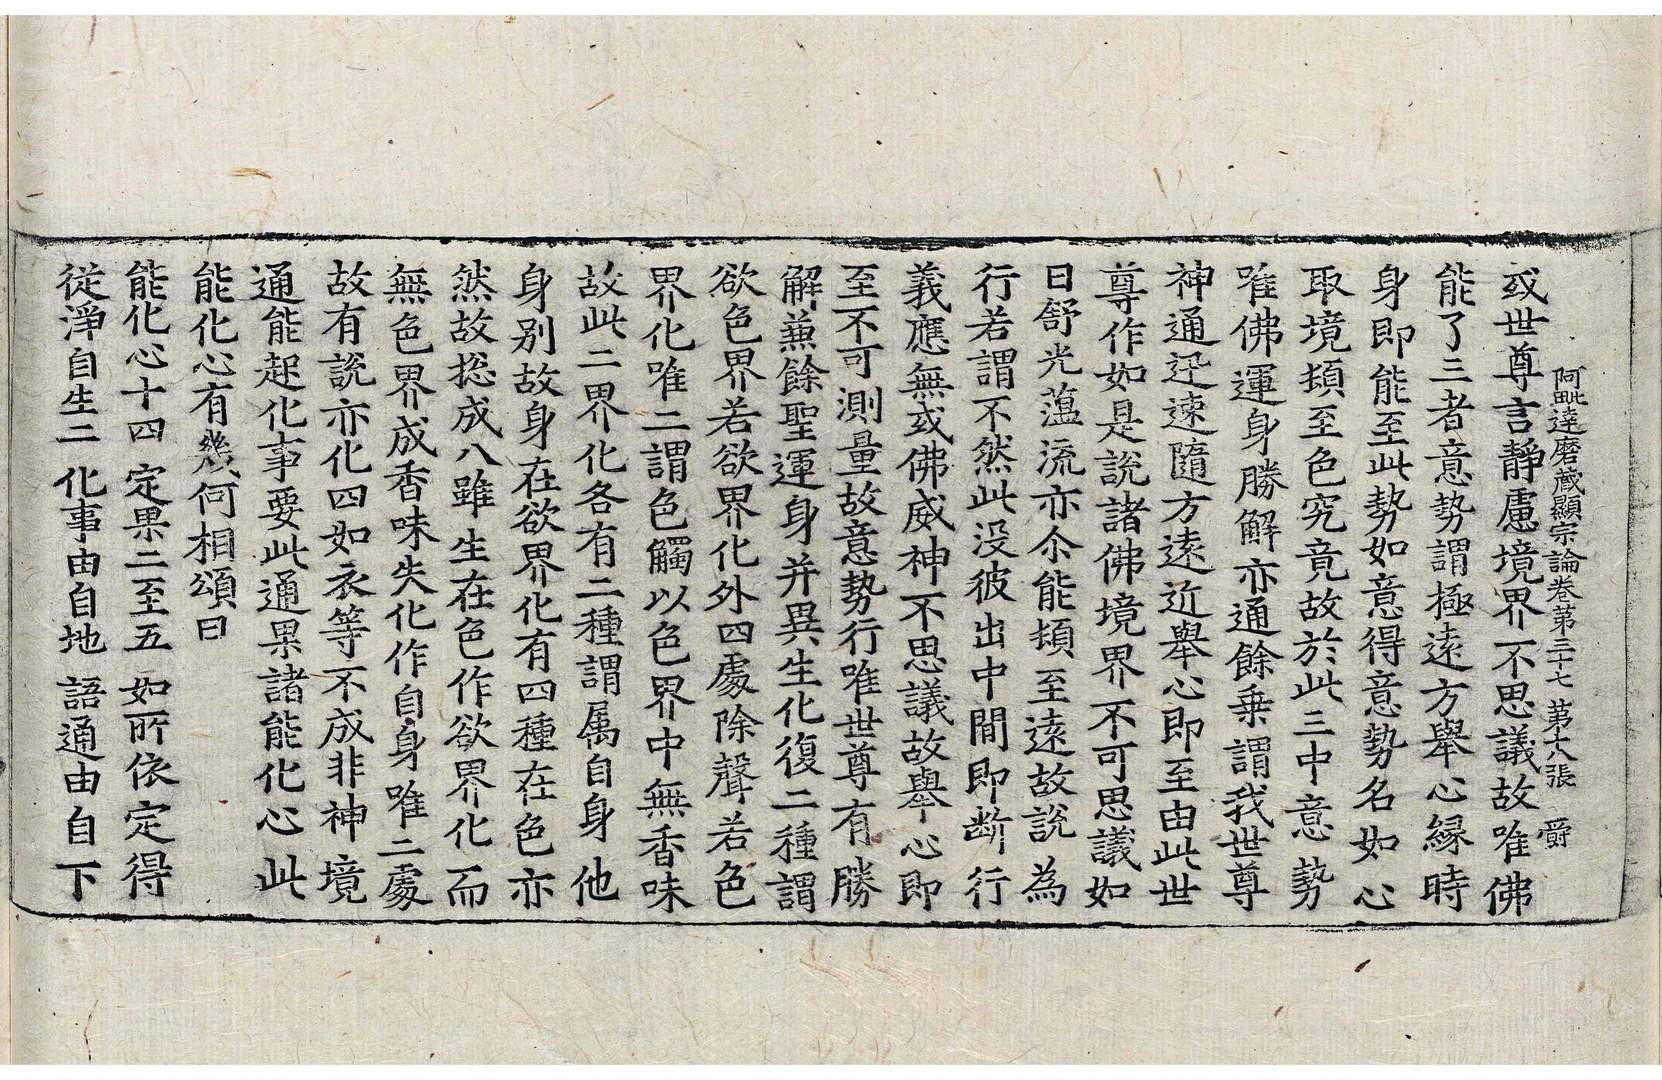 阿毗達磨藏顯宗論卷第三十七　第十八張　爵
或世尊言静慮境界不思議故唯佛
能了三者意勢謂極遠方舉心緣時
身即能至此勢如意得意勢名如心
取境頓至色究竟故於此三中意勢
唯佛運身勝解亦通餘乗謂我世尊
神通迅速隨方遠近舉心即至由此世
尊作如是說諸佛境界不可思議如
日舒光薀流亦尒能頓至遠故說為
行若謂不然此没彼出中間即断行
義應無或佛威神不思議故舉心即
至不可測量故意勢行唯世尊有勝
解蕪餘聖運身并異生化復二種謂
欲色界若欲界化外四處除聲若色
界化唯二謂色觸以色界中無香味
故此二界化各有二種謂属自身他
身别故身在欲界化有四種在色亦
然故捴成八雖生在色作欲界化而
無色界成香味失化作自身唯二處
故有說亦化四如衣等不成非神境
通能起化事要此通果諸能化心此
能化心有幾何相頌曰
能化心十四　定果二至五　如所依定得
從淨自生二　化事由自地　語通由自下